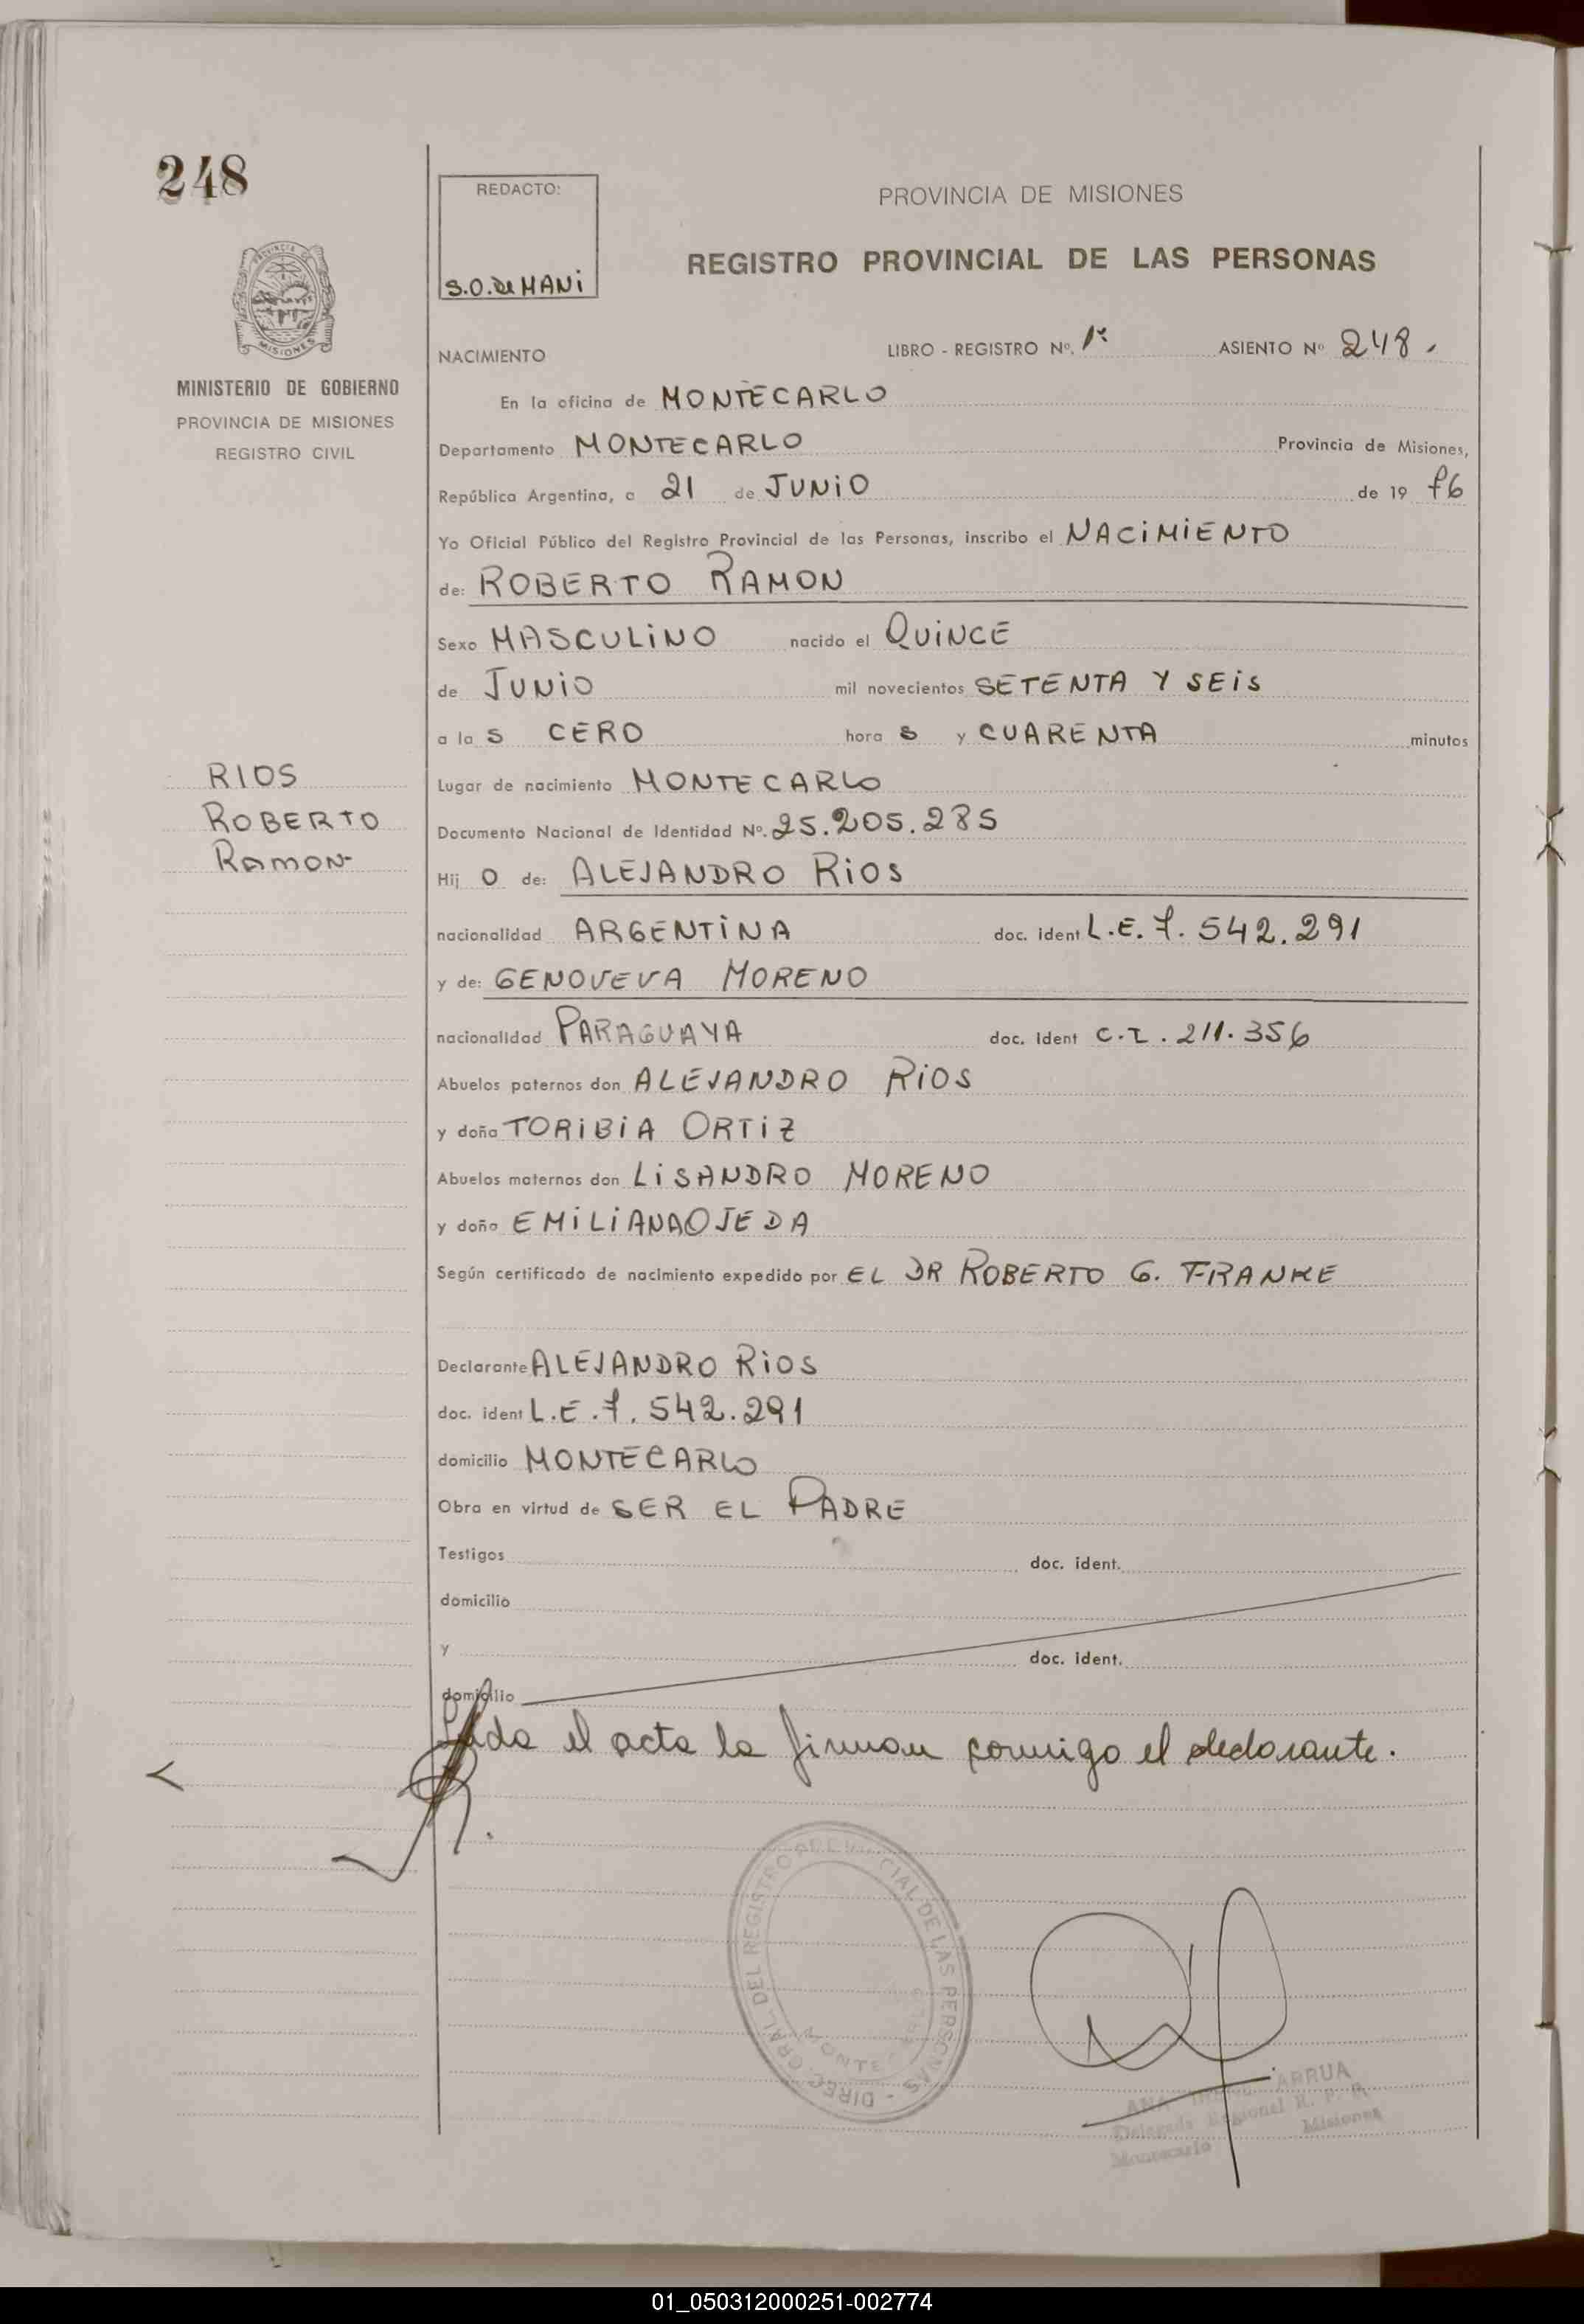 248
REDACTO:
S.O. de MANi
PROVINCIA DE MISIONES
REGISTRO PROVINCIAL DE LAS PERSONAS
PROVINCIA DE MISIONES
MINISTERIO DE GOBIERNO
PROVINCIA DE MISIONES
REGISTRO CIVIL
NACIMIENTO LIBRO - REGISTRO Nº. 1º ASIENTO Nº 248.
En la oficina de MONTECARLO
Departamento MONTECARLO Provincia de Misiones,
República Argentina, a 21 de JUNiO de 19 76
Yo Oficial Público del Registro Provincial de las Personas, inscribo el NACiMiENTO
de: ROBERTO RAMON
Sexo MASCULiNO nacido el QUiNCE
de JUNiO mil novecientos SETENTA Y SEiS
a la S CERO hora S y CUARENTA minutos
RIOS
ROBERTO
RAMON
Lugar de nacimiento MONTECARLO
Documento Nacional de Identidad Nº. 25.205.285
Hij O de: ALEJANDRO RiOS
nacionalidad ARGENTiNA doc. ident L.E. 7.542.291
y de: GENOVEVA MORENO
nacionalidad PARAGUAYA doc. ident C.I. 211.356
Abuelos paternos don ALEJANDRO RiOS
y doña TORiBiA ORTiZ
Abuelos maternos don LiSANDRO MORENO
y doña EMiLiANA OJEDA
Según certificado de nacimiento expedido por EL DR ROBERTO G. FRANKE
Declarante ALEJANDRO RiOS
doc. ident L.E. 7.542.291
domicilio MONTECARLO
Obra en virtud de SER EL PADRE
Testigos doc. ident.
domicilio
y doc. ident.
domicilio
Leida el acta la firman conmigo el declarante.
DIREC. GRAL DEL REGISTRO PROVINCIAL DE LAS PERSONAS
MONTECARLO
ANA ARRUA
Delegada Regional R. P. P.
Montecarlo Misiones
01_050312000251-002774